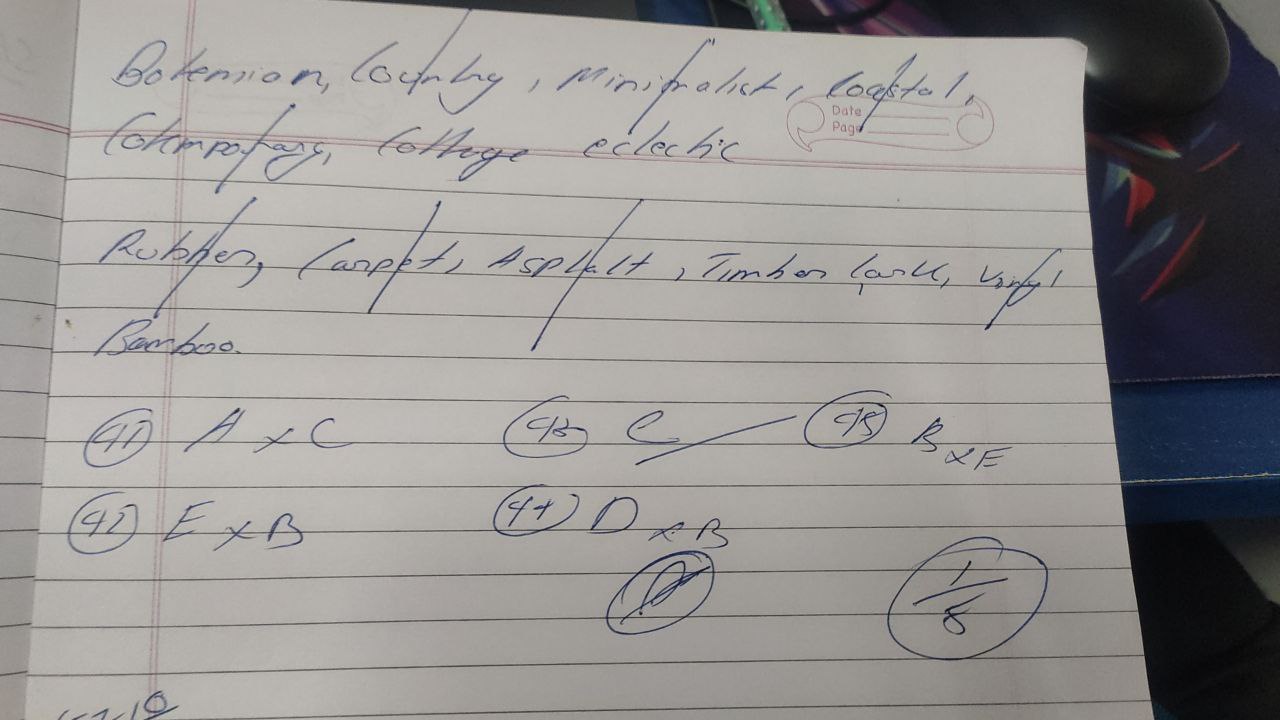 Bohemian, Country, Minimalist, Coastal,
Date
Page
Cottage eclectic
Rubber, Carpet, Asphalt, Timber Cark, Vinyl
Bamboo.
41 A x C 43 C 45 B x E
42 E x B 44 D x B
1/8